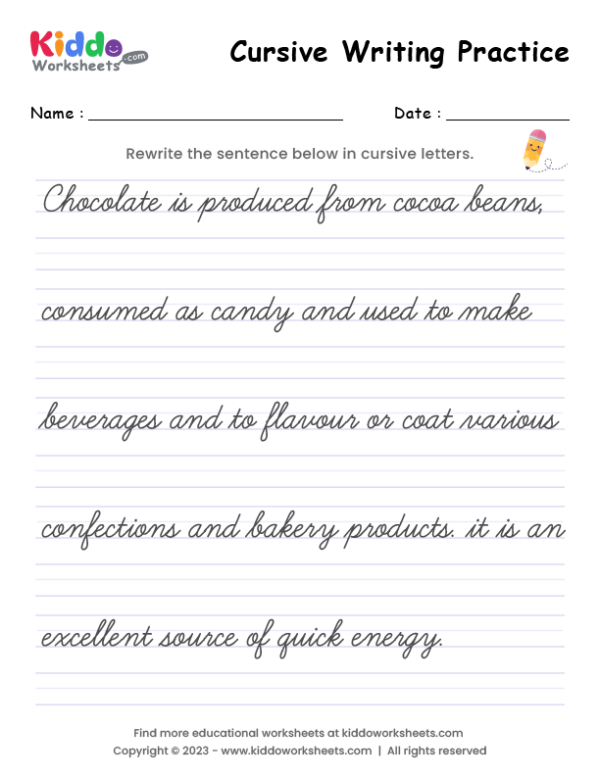 Kiddo
Worksheets .com
Cursive Writing Practice
Name : Date :
Rewrite the sentence below in cursive letters.
Chocolate is produced from cocoa beans,
consumed as candy and used to make
beverages and to flavour or coat various
confections and bakery products. it is an
excellent source of quick energy.
Find more educational worksheets at kiddoworksheets.com
Copyright © 2023 - www.kiddoworksheets.com | All rights reserved